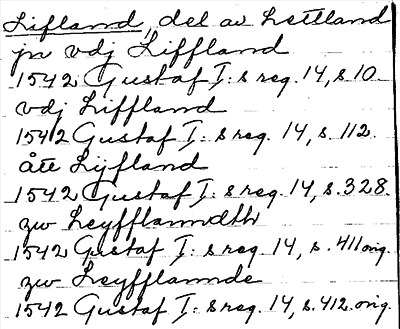 Lifland, del av Lettland
jn vdj Liffland
1542 Gustaf I: s reg. 14, s. 10
vdj Liffland
1542 Gustaf I: s reg. 14, s. 112.
ått Lijfland
1542 Gustaf I: s reg. 14, s. 328.
zw Leyfflanndth
1542 Gustaf I: s reg. 14, s. 411 orig.
zw Leyfflannde
1542 Gustaf I: s reg. 14, s. 412. orig.